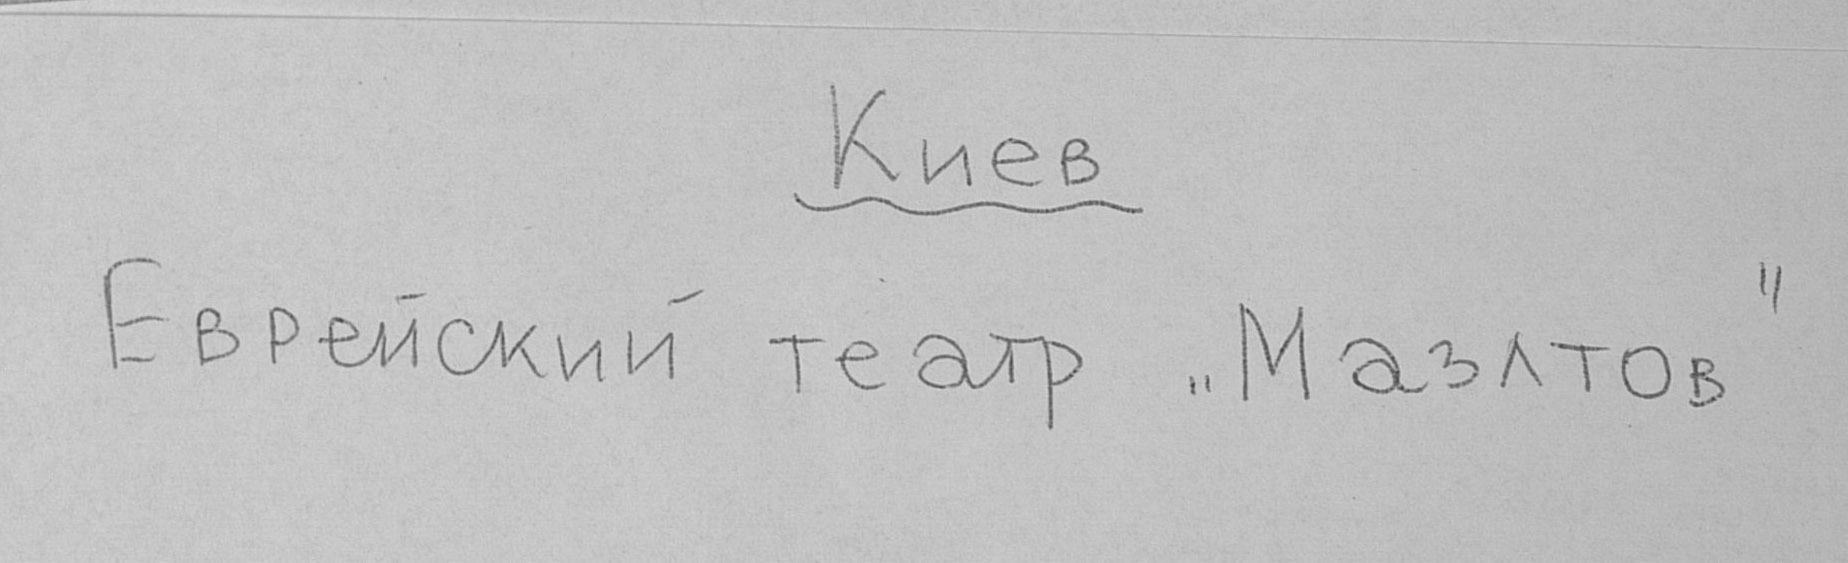 Киев
Еврейский театр „Мазлтов"